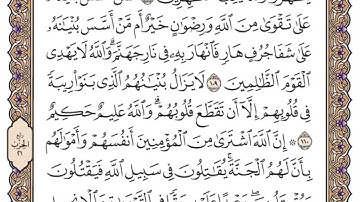 عَلَىٰ تَقْوَىٰ مِنَ ٱللَّهِ وَرِضْوَٰنٍ خَيْرٌ أَم مَّنْ أَسَّسَ بُنْيَٰنَهُۥ
عَلَىٰ شَفَا جُرُفٍ هَارٍ فَٱنْهَارَ بِهِۦ فِى نَارِ جَهَنَّمَ ۗ وَٱللَّهُ لَا يَهْدِى
ٱلْقَوْمَ ٱلظَّٰلِمِينَ ١٠٩ لَا يَزَالُ بُنْيَٰنُهُمُ ٱلَّذِى بَنَوْا۟ رِيبَةً
فِى قُلُوبِهِمْ إِلَّآ أَن تَقَطَّعَ قُلُوبُهُمْ ۗ وَٱللَّهُ عَلِيمٌ حَكِيمٌ
١١٠ ۞ إِنَّ ٱللَّهَ ٱشْتَرَىٰ مِنَ ٱلْمُؤْمِنِينَ أَنفُسَهُمْ وَأَمْوَٰلَهُم
بِأَنَّ لَهُمُ ٱلْجَنَّةَ ۚ يُقَٰتِلُونَ فِى سَبِيلِ ٱللَّهِ فَيَقْتُلُونَ